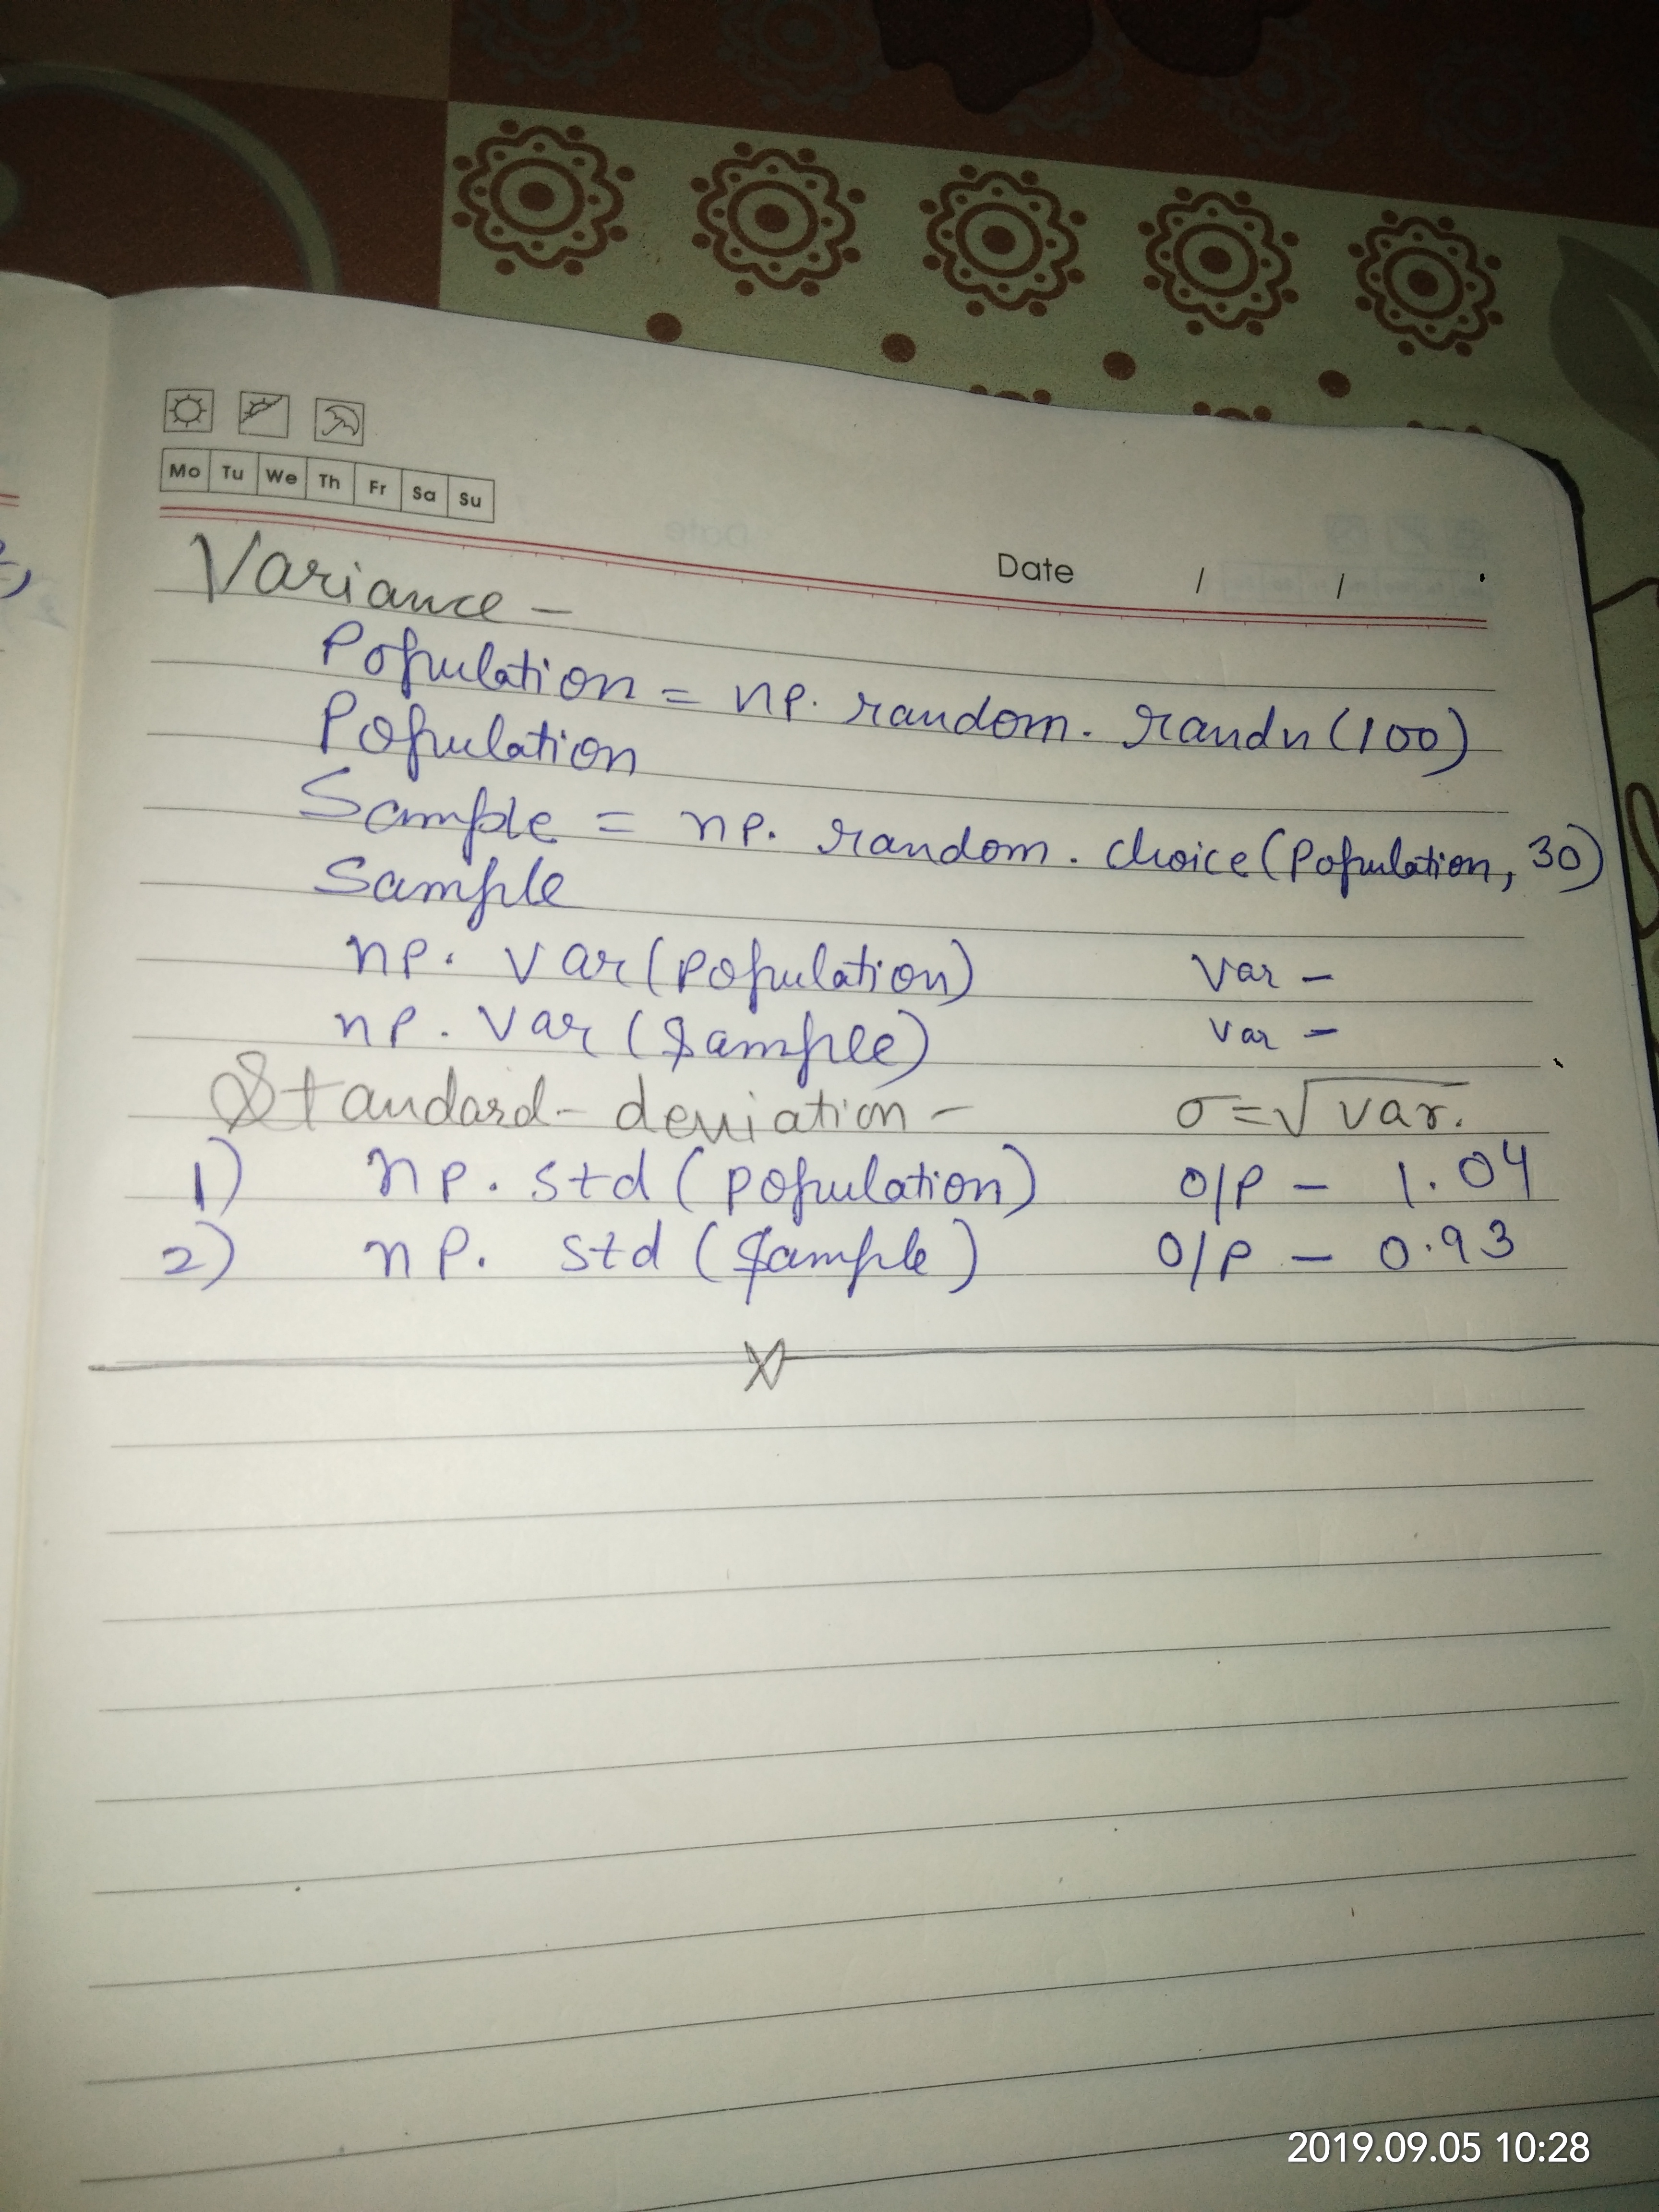 Mo Tu We Th Fr Sa Su
Date / /
Variance -
Population = np. random. randn (100)
Population
Sample = np. random. choice (Population, 30)
Sample
np. var (population) Var -
np. var (Sample) Var -
Standard - deviation - σ = √var.
1) np. std (population) O/P - 1.04
2) np. std (Sample) O/P - 0.93
X
2019.09.05 10:28